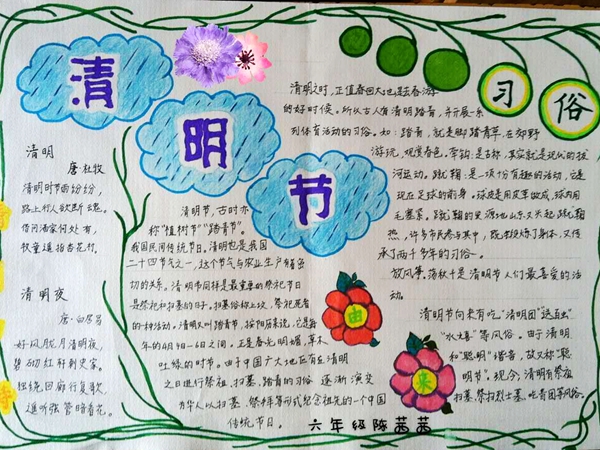 清
明
节
习
俗
清明
唐·杜牧
清明时节雨纷纷，
路上行人欲断魂。
借问酒家何处有，
牧童遥指杏花村。
清明夜
唐·白居易
好风胧月清明夜，
碧砌红轩刺史家。
独绕回廊行复歇，
遥听弦管暗看花。
清明节，古时亦
称“植树节”“踏青节”。
我国民间传统节日。清明也是我国
二十四节气之一，这个节气与农业生产有着密
切的关系。清明节同样是最重要的祭祀节日
是祭祀和扫墓的日子。扫墓俗称上坟，祭祀死者
的一种活动。清明又叫踏青节，按阳历来说，它是每
年的4月4日-6日之间。正是春光明媚，草木
吐绿的时节。由于中国广大地在清明
之日进行祭祖、扫墓、踏青的习俗逐渐演变
为华人以扫墓、祭拜等形式纪念祖先的一个中国
传统节日。
清明之时，正值春回大地是去春游
的好时候。所以古人有清明踏青，并开展一系
列体育活动的习俗。如：踏青，就是脚踏青草，在郊野
游玩，观赏春色。牵钩：是古称，其实就是现代的拔
河运动。蹴鞠：是一项份有趣的活动，它是
现在足球的前身。球皮是用皮革做成，球内用
毛塞紧。
热，许多市民参与其中，既能锻炼了身体，又传
承了两千多年的习俗。
放风筝、荡秋千是清明节人们最喜爱的活
动。
清明节向来有吃“清明团”
等风俗。由于清明
和“聪明”谐音，故又称“聪
明节”。现今，清明有祭祖
扫墓、祭扫烈士墓、吃青团等风俗。
由
来
六年级陈茜茜